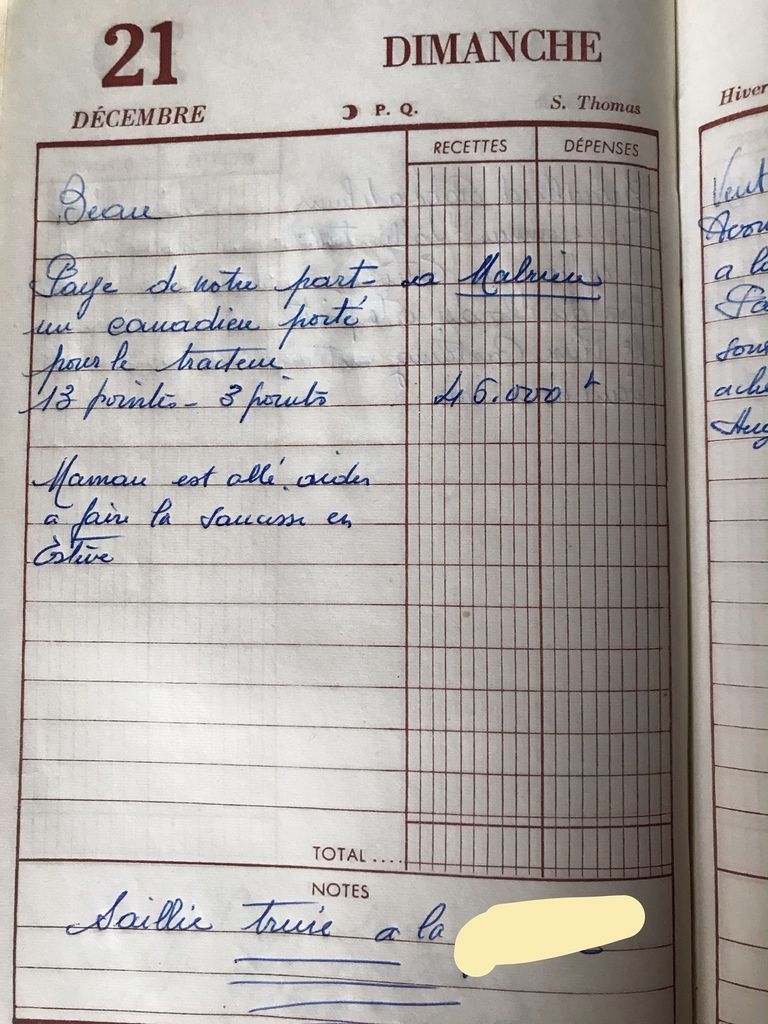 21 DIMANCHE
DÉCEMBRE P. Q. S. Thomas
RECETTES DÉPENSES
Beau
Paye de notre part - a Malrieu
un canadien porté
pour le tracteur
13 pointes - 3 points 46.000 F
Maman est allé aider
a faire la saucisse en
Estève
TOTAL ....
NOTES
Saillie truie a la
Hiver
Vent
a la